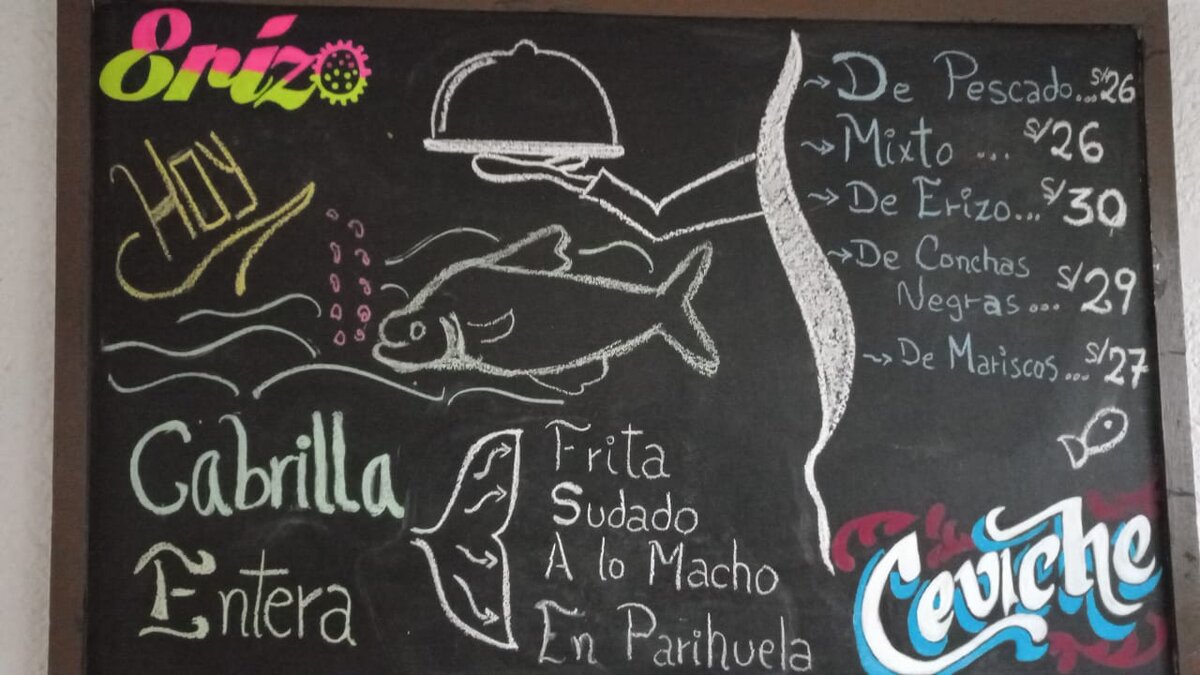 Erizo
Hoy
Cabrilla
Entera
Frita
Sudado
A lo Macho
En Parihuela
De Pescado... S/26
Mixto ... S/26
De Erizo... S/30
De Conchas
Negras... S/29
De Mariscos... S/27
Ceviche